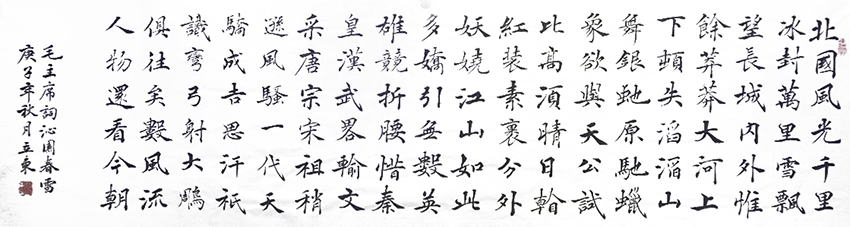 北國風光千里
冰封萬里雪飄
望長城內外惟
餘莽莽大河上
下頓失滔滔山
舞銀虵原馳蠟
象欲與天公試
比高湏晴日
紅裝素裹分外
妖嬈江山如此
多嬌引無數英
雄競折腰惜秦
皇漢武畧輸文
采唐宗宋祖稍
遜風騷一代天
驕成吉思汗祇
識彎弓射大鵰
俱往矣數風流
人物還看今朝
毛主席詞沁園春雪
庚子年秋月立東